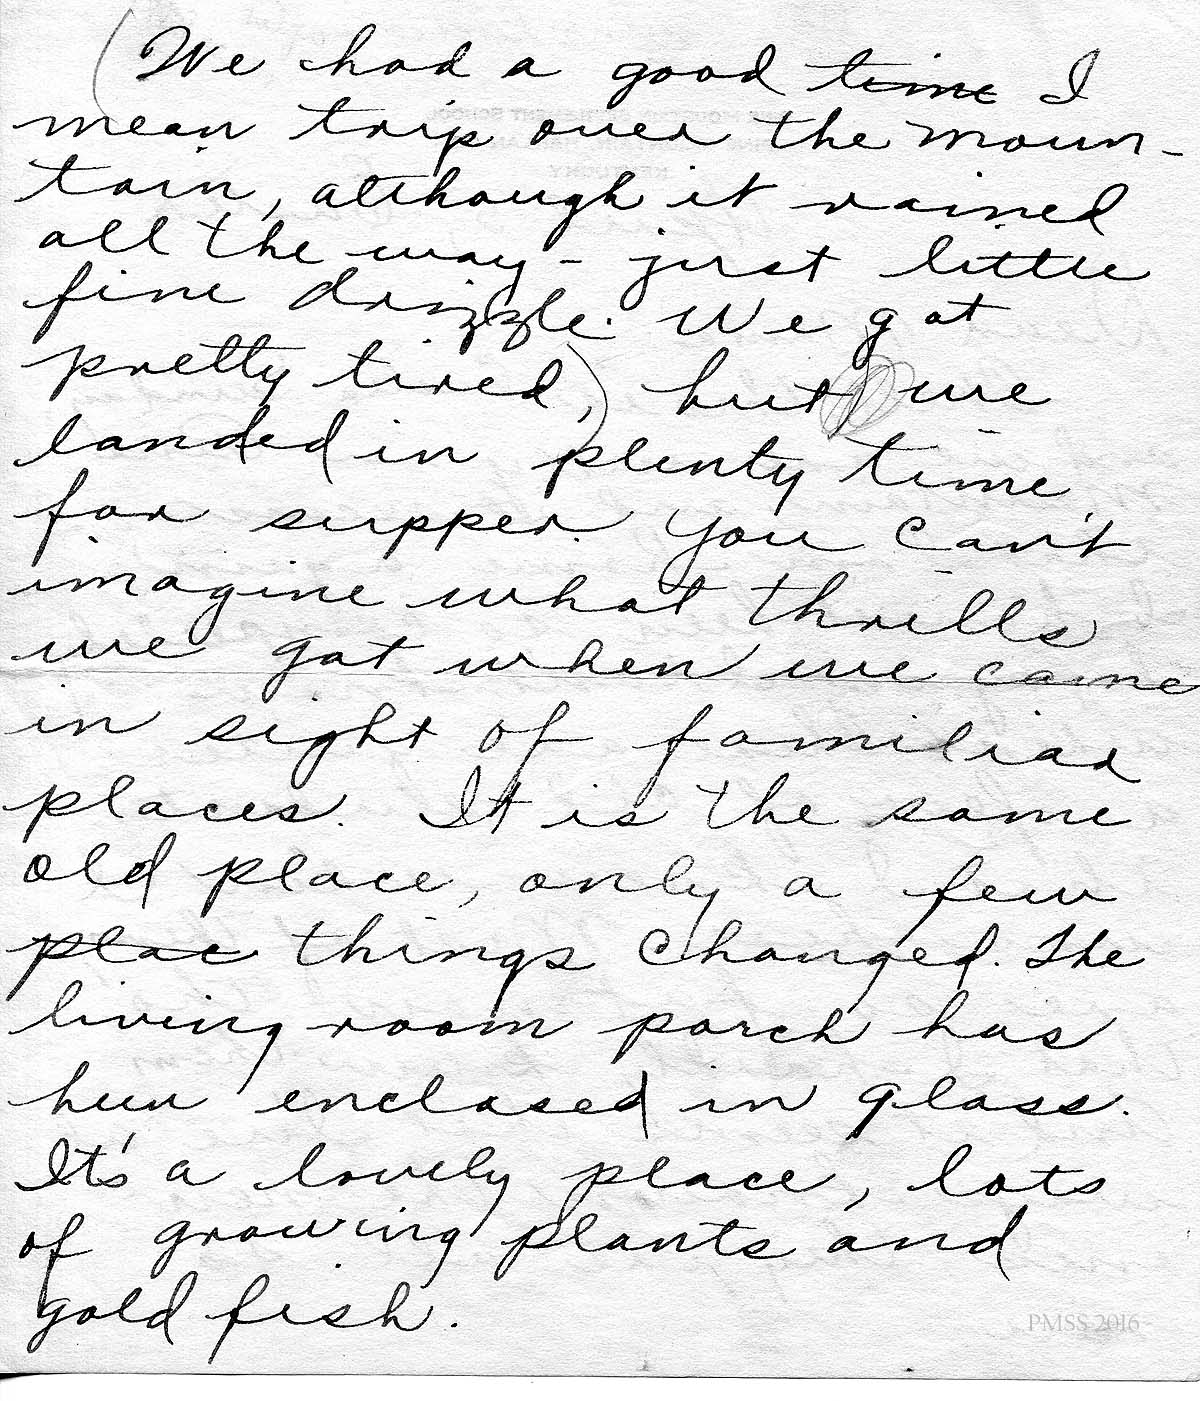 (We had a good ~~time~~ I
mean trip over the moun-
tain, although it rained
all the way - just little
fine drizzle. We got
pretty tired,) but we
landed in plenty time
for supper. You can't
imagine what thrills
we got when we came
in sight of familiar
places. It is the same
old place, only a few
~~plac~~ things changed. The
living room porch has
been enclosed in glass.
It's a lovely place, lots
of growing plants and
gold fish.
PMSS 2016